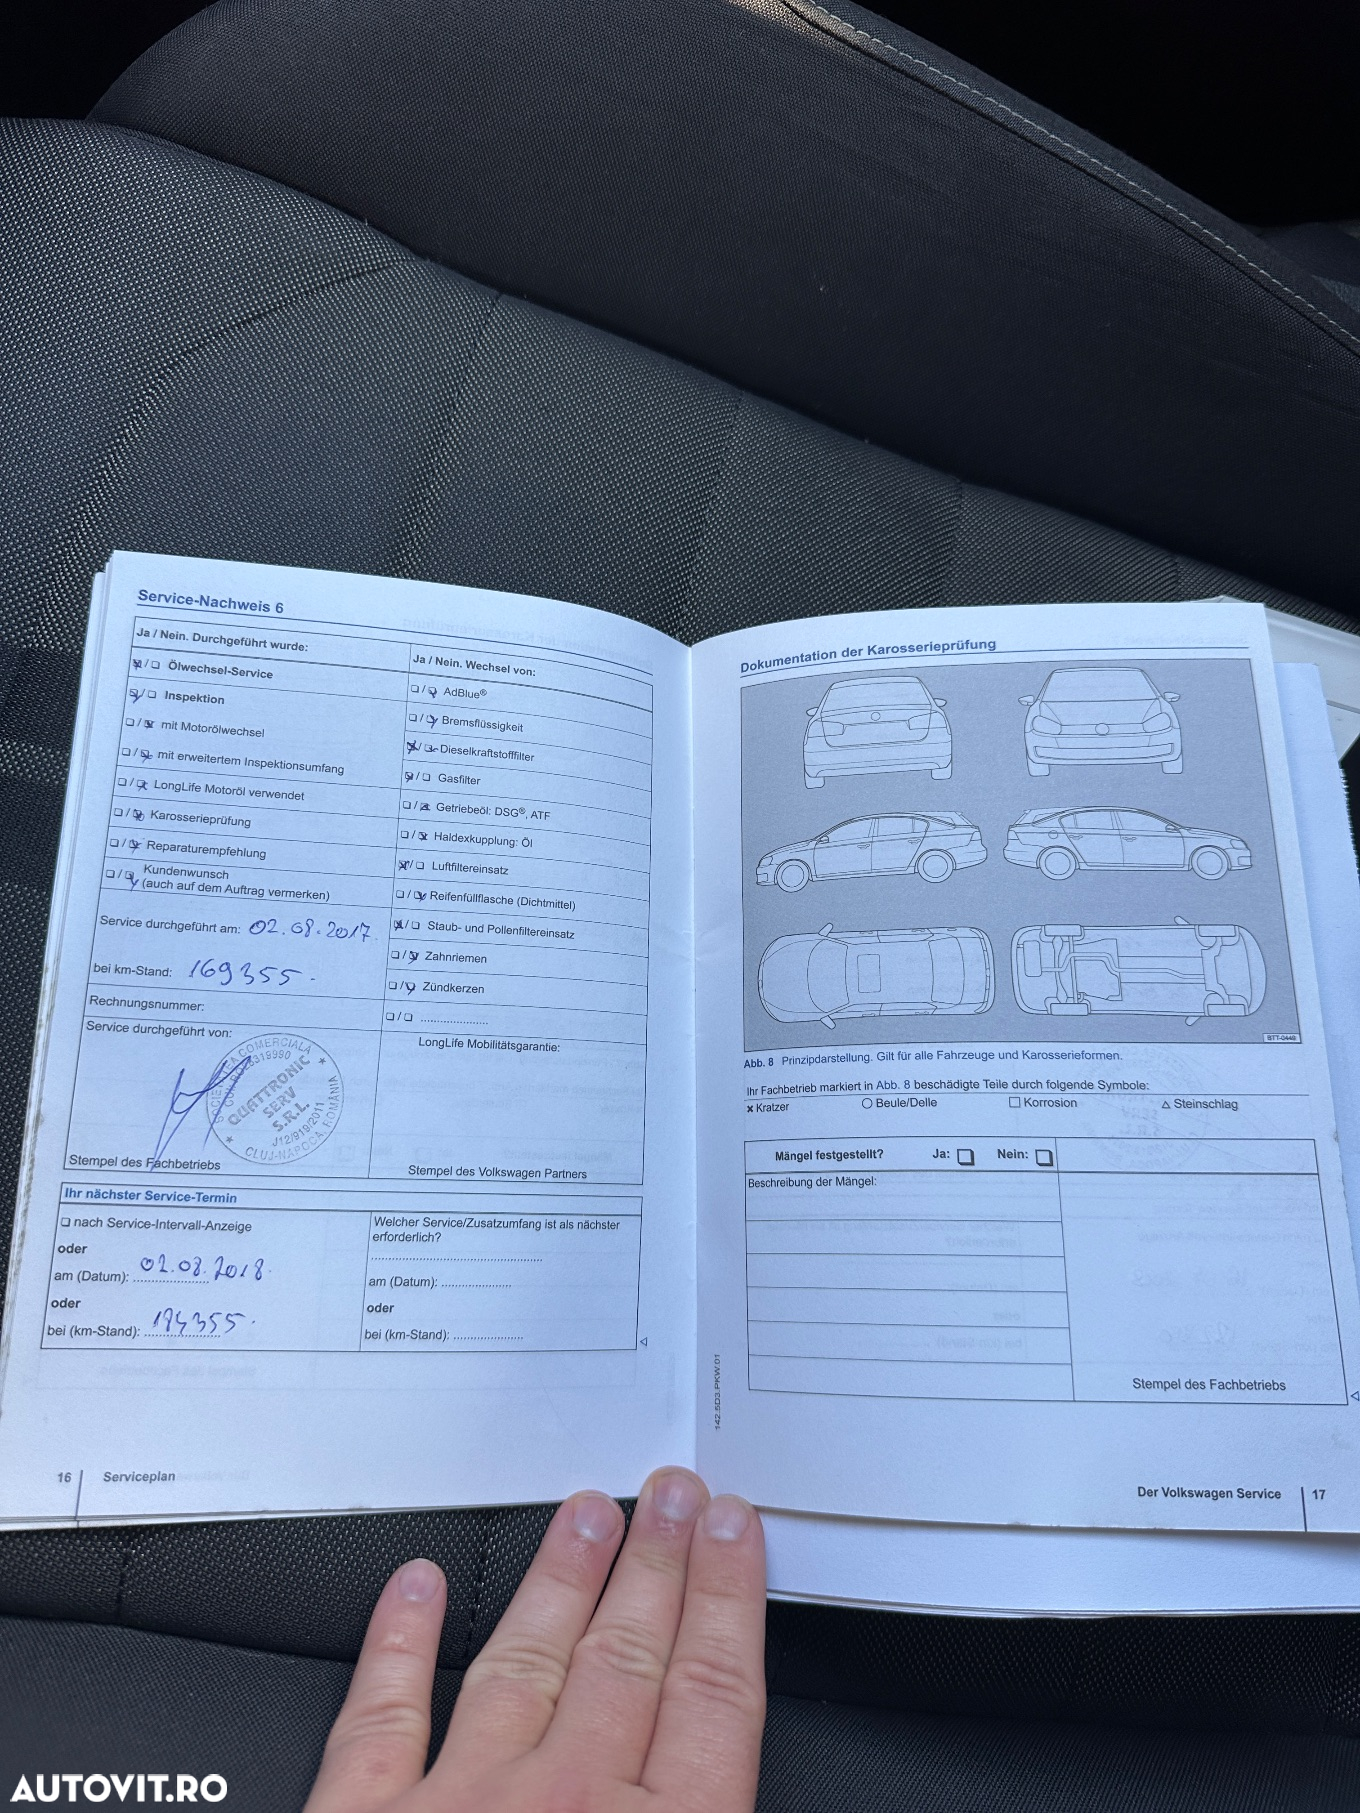 Service-Nachweis 6
Ja / Nein. Durchgeführt wurde:
Ölwechsel-Service
Inspektion
mit Motorölwechsel
mit erweitertem Inspektionsumfang
LongLife Motoröl verwendet
Karosserieprüfung
Reparaturempfehlung
Kundenwunsch
(auch auf dem Auftrag vermerken)
Service durchgeführt am: 02.08.2017
bei km-Stand: 169355.
Rechnungsnummer:
Service durchgeführt von:
SOCIETATEA COMERCIALĂ
QUATTRONIC
SERV
S.R.L.
J12/919/2011
CLUJ-NAPOCA, ROMÂNIA
Stempel des Fachbetriebs
Ja / Nein. Wechsel von:
AdBlue®
Bremsflüssigkeit
Dieselkraftstofffilter
Gasfilter
Getriebeöl: DSG®, ATF
Haldexkupplung: Öl
Luftfiltereinsatz
Reifenfüllflasche (Dichtmittel)
Staub- und Pollenfiltereinsatz
Zahnriemen
Zündkerzen
LongLife Mobilitätsgarantie:
Stempel des Volkswagen Partners
Ihr nächster Service-Termin
nach Service-Intervall-Anzeige
oder
am (Datum): 02.08.2018.
oder
bei (km-Stand): 184355.
Welcher Service/Zusatzumfang ist als nächster
erforderlich?
am (Datum):
oder
bei (km-Stand):
16 Serviceplan
Dokumentation der Karosserieprüfung
BTT-0449
Abb. 8 Prinzipdarstellung. Gilt für alle Fahrzeuge und Karosserieformen.
Ihr Fachbetrieb markiert in Abb. 8 beschädigte Teile durch folgende Symbole:
x Kratzer ○ Beule/Delle □ Korrosion △ Steinschlag
Mängel festgestellt? Ja: Nein:
Beschreibung der Mängel:
Stempel des Fachbetriebs
142.5D3.PKW.01
Der Volkswagen Service 17
AUTOVIT.RO